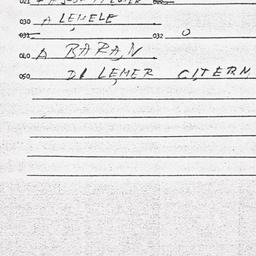 030 A LEMELE
031 032 O
040 A BARAN
050 DI LEMER CITERN